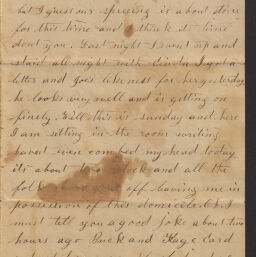 but I guess our spreeing is about done
for this time and I think it time
dont you. Last night I went up and
staid all night with I got a
letter and Joe's likeness for her yesterday
he looks very well and is getting on
finely. Well this is sunday and here
I am sitting in the room writing
havent even combed my head today
its about two oclock and all the
folks have gone off leaving me in
possession of this domicile but I
must tell you a good joke about two
hours ago Buck and Card